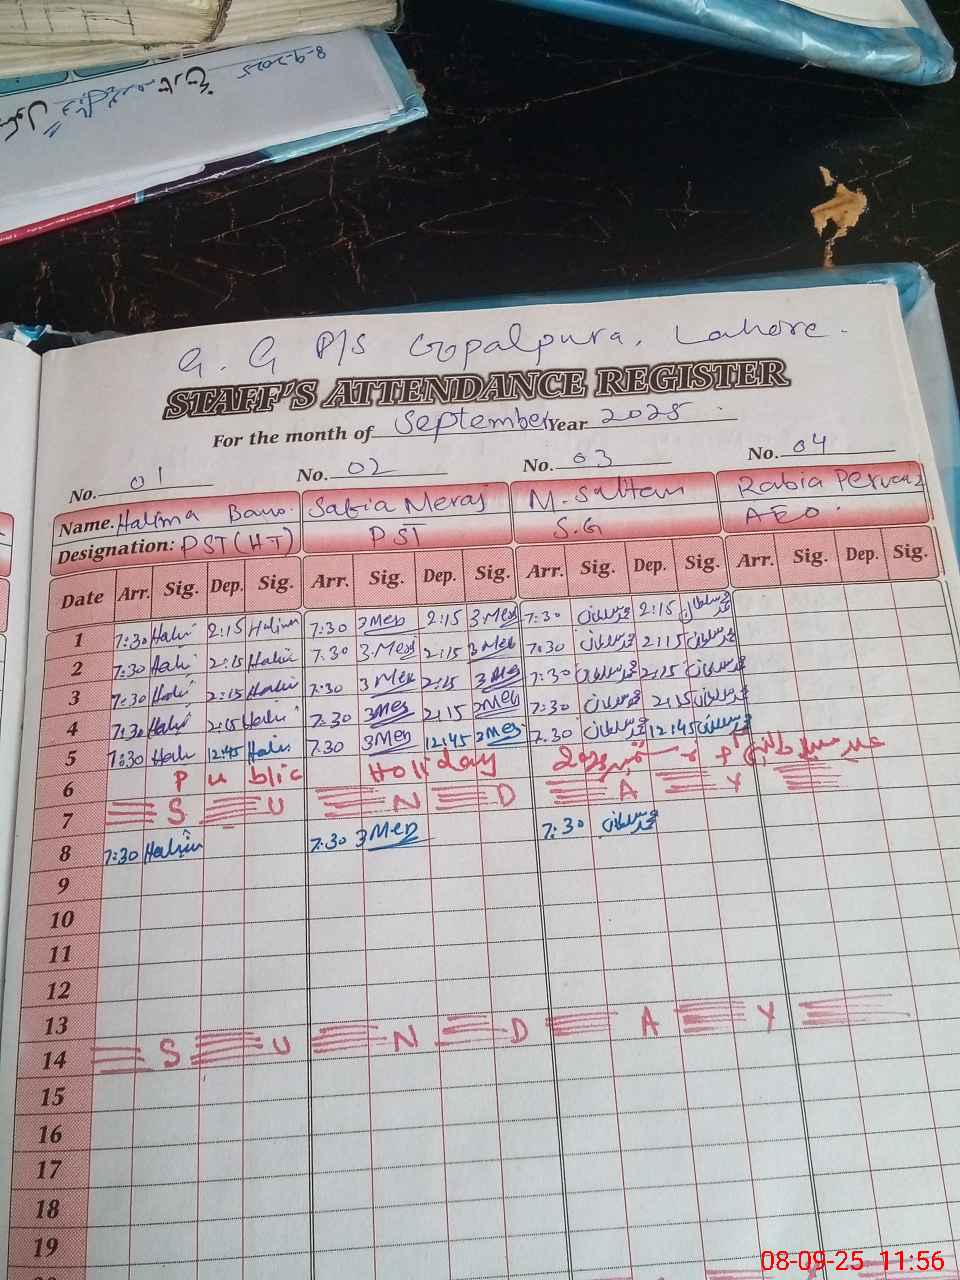 8-9-2025
G. G P/S Gopalpura, Lahore.
STAFF'S ATTENDANCE REGISTER
For the month of September Year 2025
No. 01 No. 02 No. 03 No. 04
Name. Halima Bano. Safia Meraj M. Sultan Rabia Pervaiz
Designation: PST (HT) PST S.G AEO.
Date Arr. Sig. Dep. Sig. Arr. Sig. Dep. Sig. Arr. Sig. Dep. Sig. Arr. Sig. Dep. Sig.
1 7:30 2:15 7:30 2:15 7:30 محمد سلطان 2:15 محمد سلطان
2 7:30 2:15 7:30 2:15 7:30 محمد سلطان 2:15 محمد سلطان
3 7:30 2:15 7:30 2:15 7:30 محمد سلطان 2:15 محمد سلطان
4 7:30 2:15 7:30 2:15 7:30 محمد سلطان 2:15 محمد سلطان
5 7:30 12:45 7:30 12:45 7:30 محمد سلطان 12:45 محمد سلطان
6 Public Holiday عید میلاد النبی
7 S U N D A Y
8 7:30 7:30 7:30 محمد سلطان
9
10
11
12
13
14 S U N D A Y
15
16
17
18
19
08-09-25 11:56